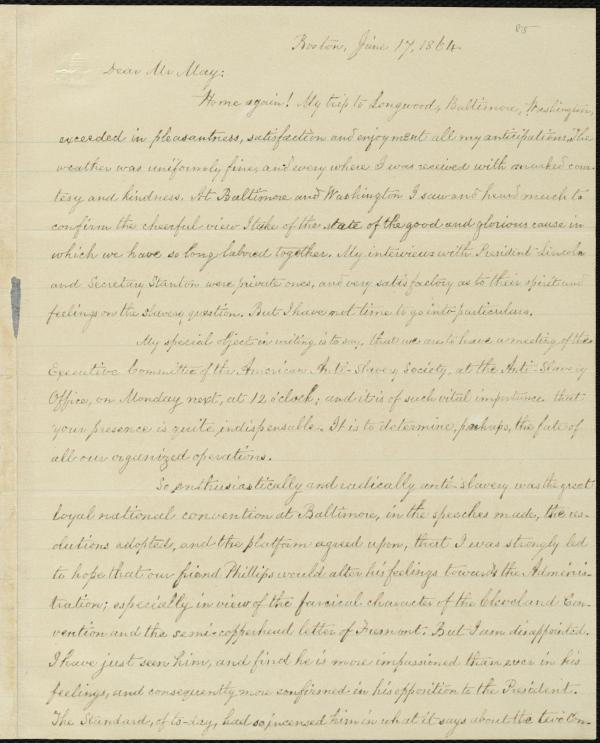 85
Boston, June 17, 1864.
Dear Mr May:
Home again! My trip to Longwood, Baltimore, Washington,
exceeded in pleasantness, satisfaction and enjoyment all my anticipations. The
weather was uniformly fine, and every where I was received with marked cour-
tesy and kindness. At Baltimore and Washington I saw and heard much to
confirm the cheerful view I take of the state of the good and glorious cause in
which we have so long labored together. My interviews with President Lincoln
and Secretary Stanton were private ones, and very satisfactory as to their spirit and
feelings on the slavery question. But I have not time to go into particulars.
My special object in writing is to say, that we are to have a meeting of the
Executive Committee of the American Anti-Slavery Society, at the Anti-Slavery
Office, on Monday next, at 12 o'clock; and it is of such vital importance that
your presence is quite indispensable. It is to determine, perhaps, the fate of
all our organized operations.
So enthusiastically and radically anti-slavery was the great
loyal national convention at Baltimore, in the speeches made, the res-
olutions adopted, and the platform agreed upon, that I was strongly led
to hope that our friend Phillips would alter his feelings towards the Adminis-
tration; especially in view of the farcical character of the Cleveland Con-
vention and the semi-copperhead letter of Fremont. But I am disappointed.
I have just seen him, and find he is more impassioned than ever in his
feelings, and consequently more confirmed in his opposition to the President.
The Standard, of to-day, had so incensed him in what it says about the two Con-